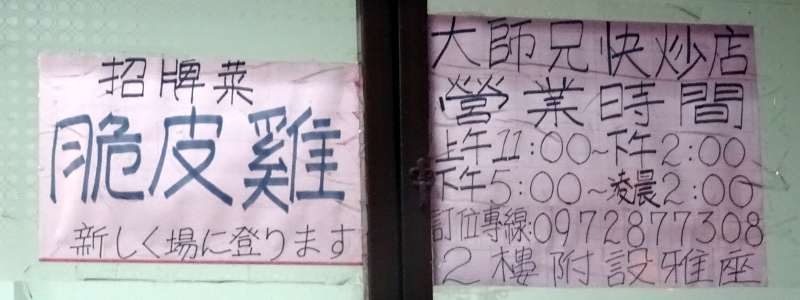 招牌菜
脆皮雞
新しく場に登ります
大師兄快炒店
營業時間
上午11:00~下午2:00
下午5:00~凌晨2:00
訂位專線:0972877308
2樓附設雅座